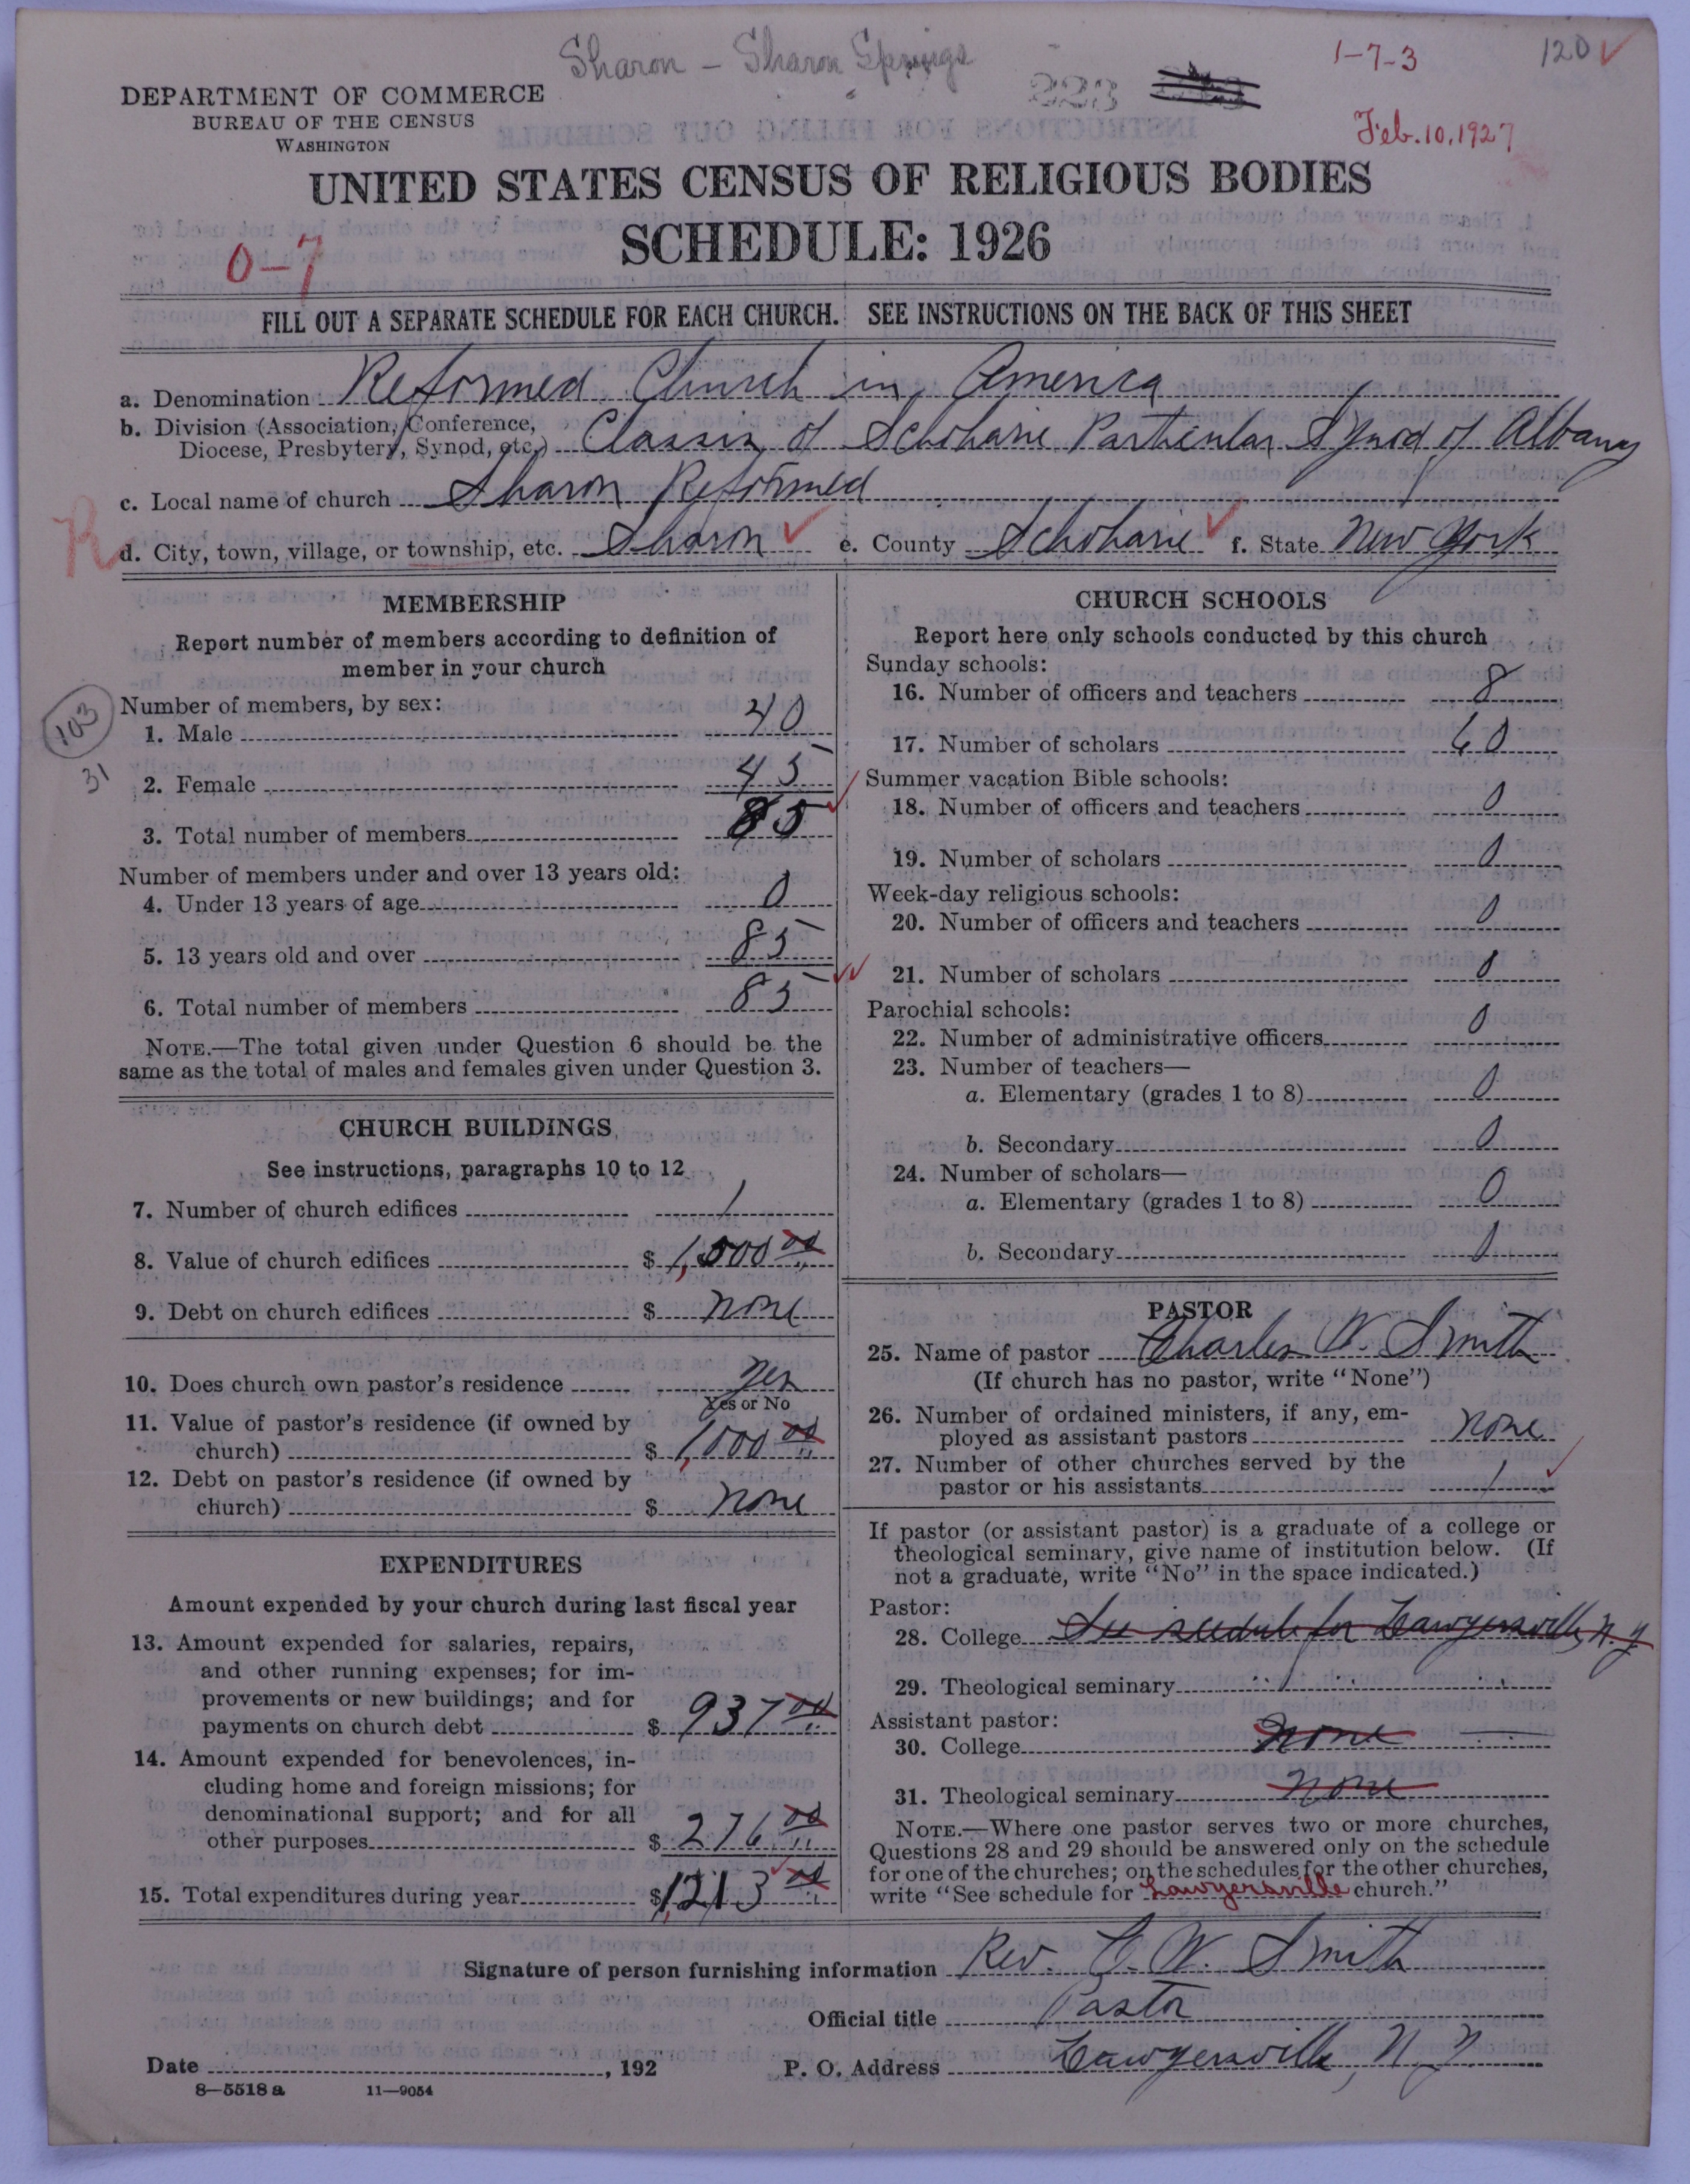 Sharon - Sharon Springs
223
1-7-3
120 ✓
DEPARTMENT OF COMMERCE
BUREAU OF THE CENSUS
WASHINGTON
Feb. 10, 1927
UNITED STATES CENSUS OF RELIGIOUS BODIES
SCHEDULE: 1926
0-7
FILL OUT A SEPARATE SCHEDULE FOR EACH CHURCH. SEE INSTRUCTIONS ON THE BACK OF THIS SHEET
a. Denomination Reformed Church in America
b. Division (Association, Conference,
Diocese, Presbytery, Synod, etc.) Classis of Schoharie Particular Synod of Albany
c. Local name of church Sharon Reformed
R
d. City, town, village, or township, etc. Sharon ✓ e. County Schoharie ✓ f. State New York
MEMBERSHIP
Report number of members according to definition of
member in your church
103
31
Number of members, by sex:
1. Male 40
2. Female 45
3. Total number of members 85 ✓
Number of members under and over 13 years old:
4. Under 13 years of age 0
5. 13 years old and over 85
6. Total number of members 85 ✓✓
NOTE.—The total given under Question 6 should be the
same as the total of males and females given under Question 3.
CHURCH BUILDINGS
See instructions, paragraphs 10 to 12
7. Number of church edifices 1
8. Value of church edifices $ 1,500 00
9. Debt on church edifices $ none
10. Does church own pastor's residence yes
Yes or No
11. Value of pastor's residence (if owned by
church) $ 1,000 00
12. Debt on pastor's residence (if owned by
church) $ none
EXPENDITURES
Amount expended by your church during last fiscal year
13. Amount expended for salaries, repairs,
and other running expenses; for im-
provements or new buildings; and for
payments on church debt $ 937 00
14. Amount expended for benevolences, in-
cluding home and foreign missions; for
denominational support; and for all
other purposes $ 276 00
15. Total expenditures during year $ 1,213 00
CHURCH SCHOOLS
Report here only schools conducted by this church
Sunday schools:
16. Number of officers and teachers 8
17. Number of scholars 60
Summer vacation Bible schools:
18. Number of officers and teachers 0
19. Number of scholars 0
Week-day religious schools:
20. Number of officers and teachers 0
21. Number of scholars 0
Parochial schools:
22. Number of administrative officers 0
23. Number of teachers—
a. Elementary (grades 1 to 8) 0
b. Secondary 0
24. Number of scholars—
a. Elementary (grades 1 to 8) 0
b. Secondary 0
PASTOR
25. Name of pastor Charles W. Smith
(If church has no pastor, write "None")
26. Number of ordained ministers, if any, em-
ployed as assistant pastors none
27. Number of other churches served by the
pastor or his assistants 1 ✓
If pastor (or assistant pastor) is a graduate of a college or
theological seminary, give name of institution below. (If
not a graduate, write "No" in the space indicated.)
Pastor:
28. College See scedule for Lawyersville, N.Y.
29. Theological seminary
Assistant pastor:
30. College none
31. Theological seminary none
NOTE.—Where one pastor serves two or more churches,
Questions 28 and 29 should be answered only on the schedule
for one of the churches; on the schedules for the other churches,
write "See schedule for Lawyersville church."
Signature of person furnishing information Rev. C. W. Smith
Official title Pastor
Date , 192 P. O. Address Lawyersville, N.Y.
8—5518 a 11—9054